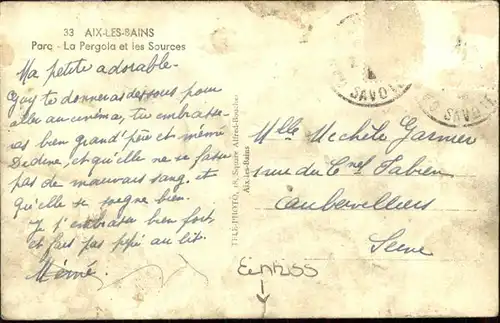 33 AIX-LES-BAINS
Parc - La Pergola et les Sources
Ma petite adorable-
Guy te donnera des sous pour
aller au cinéma, tu embrasse-
ras bien grand' père et mémé
Dedine, et qu'elle ne se fasse
pas de mauvais sang. et
qu'elle se soigne bien.
Je t'embrasse bien fort
et fais pas pipi au lit.
Mémé.
TELE-PHOTO, 18, Square Alfred-Boucher
Aix-les-Bains
SAVOIE
SAVOIE
Mlle Michèle Garnier
rue du Cnel Fabien
Aubervilliers
Seine